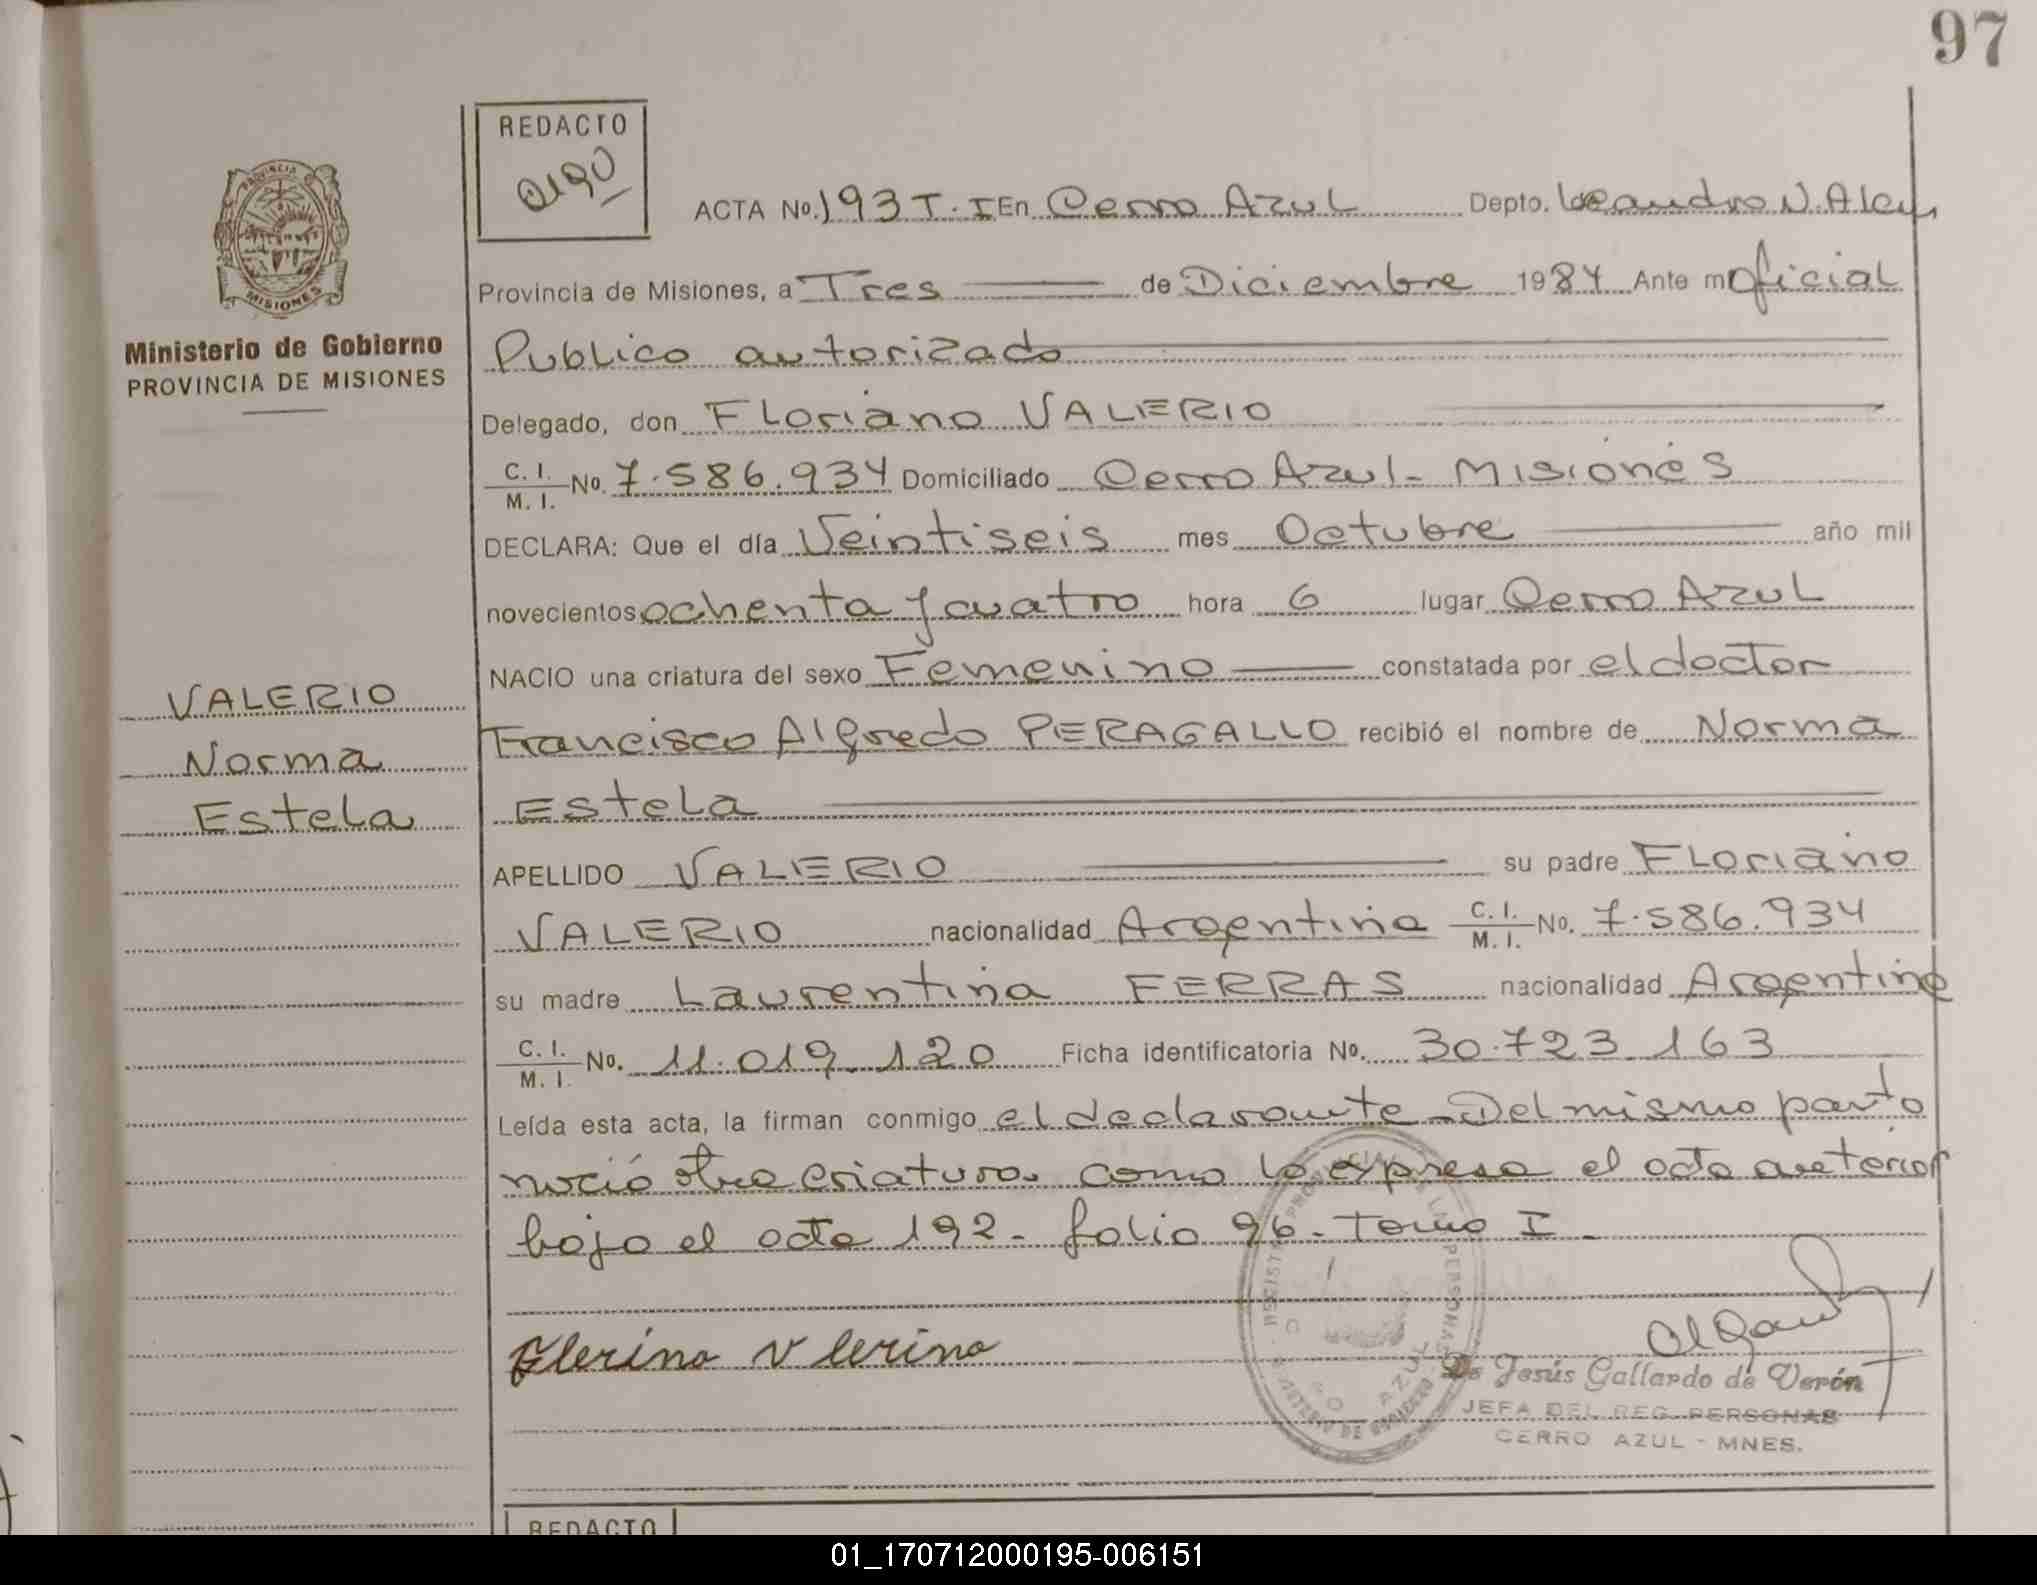 97
REDACTO
ACTA No. 193 T. I En Cerro Azul Depto. Leandro N. Alem
PROVINCIA
MISIONES
Provincia de Misiones, a Tres de Diciembre 1984 Ante m Oficial
Ministerio de Gobierno
PROVINCIA DE MISIONES
Publico autorizado
Delegado, don Floriano VALERIO
C. I. M. I. No. 7.586.934 Domiciliado Cerro Azul - Misiones
DECLARA: Que el día Veintiseis mes Octubre año mil
novecientos ochenta y cuatro hora 6 lugar Cerro Azul
NACIO una criatura del sexo Femenino constatada por el doctor
VALERIO
Norma
Estela
Francisco Alfredo PERAGALLO recibió el nombre de Norma
Estela
APELLIDO VALERIO su padre Floriano
VALERIO nacionalidad Argentina C. I. M. I. No. 7.586.934
su madre Laurentina FERRAS nacionalidad Argentina
C. I. M. I. No. 11.019.120 Ficha identificatoria No. 30.723.163
Leída esta acta, la firman conmigo el declarante - Del mismo parto
nació otra criatura como lo expresa el acta anterior
bajo el acta 192 - folio 96 - Tomo I -
Jesús Gallardo de Verón
JEFA DEL REG. PERSONAS
CERRO AZUL - MNES.
REDACTO
01_170712000195-006151